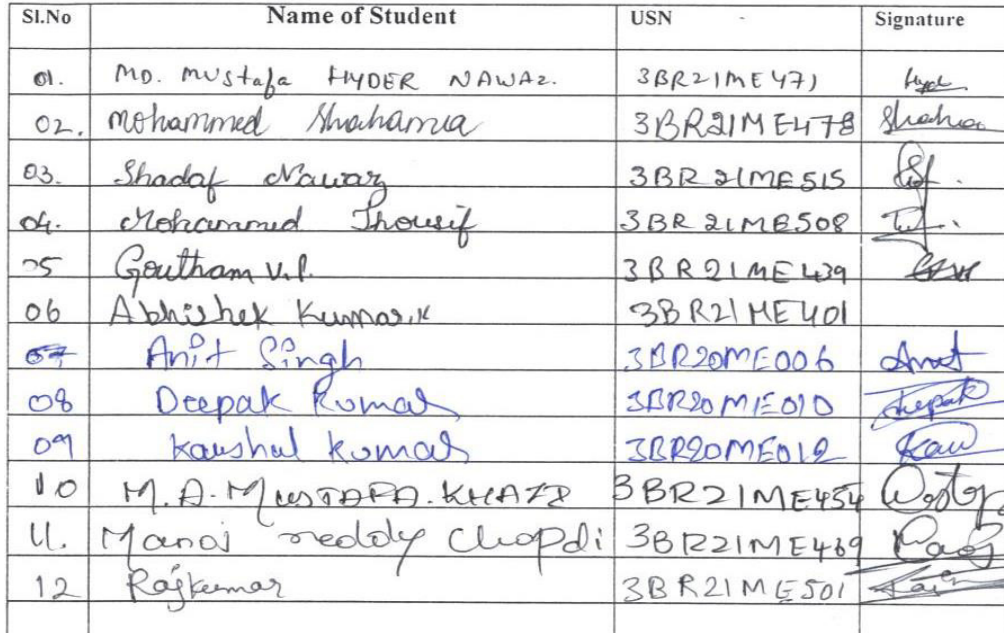 Sl.No Name of Student USN Signature
01. MD. Mustafa HYDER NAWAZ. 3BR21ME471 Hyder
02. Mohammed Shahamia 3BR21ME478
03. Shadaf Nawaz 3BR21ME515
04. Mohammed Thousif 3BR21ME508
05 Goutham V.P. 3BR21ME439
06 Abhishek Kumar.K 3BR21ME401
07 Anit Singh 3BR20ME006
08 Deepak Kumar 3BR20ME010 Deepak
09 Kaushal Kumar 3BR20ME012 Kau
10 M.A. MUSTAFA. KHAZI 3BR21ME454
11. Manoj reddy Chopdi 3BR21ME469
12 Rajkumar 3BR21ME501